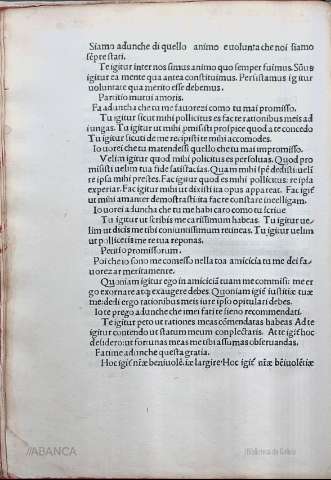 Siamo adunche di quello animo e uolunta che noi siamo
sēpre stati.
Te igitur inter nos simus animo quo semper fuimus. Simus
igitur ea mente qua antea constituimus. Persistamus igitur
uoluntate qua merito esse debemus.
Partitio mutui amoris.
Fa aduncha che tu me fauorezi como tu mai promisso.
Tu igitur sicut mihi pollicitus es fac te rationibus meis ad
iungas. Tu igitur ut mihi promisisti prospice quod a te concedo
Tu igitur sicuti de me recipisti te mihi accomodes.
Io uorei che tu matendessi quello che tu mai impromisso.
Velim igitur quod mihi policitus es persoluas. Quod pro
misisti uelim tua fide satisfacias. Quam mihi spē dedisti uelī
re ipsa mihi prestes. Fac igitur quod es mihi pollicitus: re ipsa
experiar. Fac igitur mihi ut dixisti ita opus appareat. Fac igit̄
ut mihi amanter demonstrasti: ita facre constare intelligam.
Io uorei aduncha che tu me habi caro como tu scriue
Tu igitur ut scribis me carissimum habeas. Tu igitur ue
lim ut dicis me tibi coniunissimum retineas. Tu igitur uelim
ut polliceris me re tua reponas.
Petitio promissorum.
Poi che io sono me comesso nella toa amicicia tu me dei fa
uorezar meritamente.
Quoniam igitur ego in amicicia tuam me commisi: me er
go exornare atq; exaugere debes. Quoniam igit̄ iustitie tuæ
me: dedi ergo rationibus meis iure ipso opitulari debes.
Io te prego adunche che i mei fati te sieno recommendati.
Te igitur peto ut rationes meas cōmendatas habeas Ad te
igitur contendo ut statum meum conplectaris. At te igit̄ hoc
desidero: ut fortunas meas me tibi assumas obseruandas.
Fatime adunche questa gratia.
Hoc igit̄ nr̄æ beniuolētiæ largire. Hoc igit̄ nr̄æ bēiuolētiæ
//ABANCA
Biblioteca de Galicia